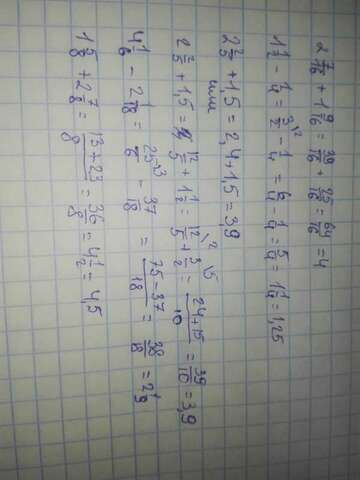 2 7/16 + 1 9/16 = 39/16 + 25/16 = 64/16 = 4
1 1/2 - 1/4 = 3/2 \2 - 1/4 = 6/4 - 1/4 = 5/4 = 1 1/4 = 1,25
2 2/5 + 1,5 = 2,4 + 1,5 = 3,9
или
2 2/5 + 1,5 = 12/5 + 1 1/2 = 12/5 \2 + 3/2 \5 = 24+15/10 = 39/10 = 3,9
4 1/6 - 2 1/18 = 25/6 \3 - 37/18 = 75-37/18 = 38/18 = 2 1/9
1 5/8 + 2 7/8 = 13+23/8 = 36/8 = 4 1/2 = 4,5